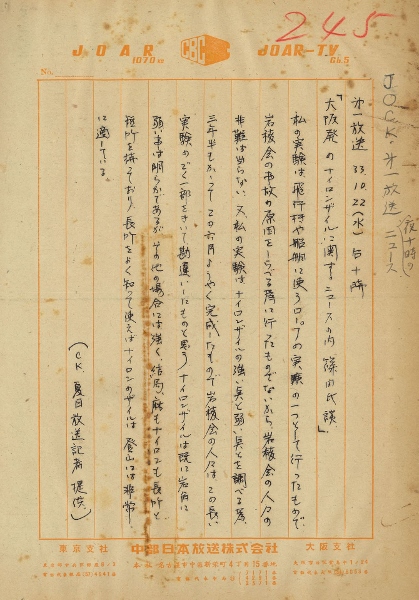 245
JOAR
1070 KC
CBC
JOAR-TV
Ch.5
No.
JOCK.第一放送 ニュース
(夜十時の
第一放送 33.10.22(水) 后十時
「大阪発のナイロンザイルに関するニュースの内 篠田氏談」
私の実験は飛行機や船舶に使うロープの実験の一つとして行ったもので
岩稜会の事故の原因をしらべる為に行ったものでないから、岩稜会の人々の
非難は当らない 又、私の実験はナイロンザイルの強い点と弱い点とを調べる為
三年半もかかって この六月ようやく完成したもので 岩稜会の人々は この長い
実験のごく一部をきいて勘違いしたものと思う ナイロンザイルは既に岩角に
弱い事は明らかであるが その他の場合には強く、結局、麻もナイロンも長所と
短所を持っており、長所をよく知って使えばナイロンのザイルは 登山には非常
に適している。
(C.K. 夏目放送記者 提供)
東京支社
中部日本放送株式会社
大阪支社